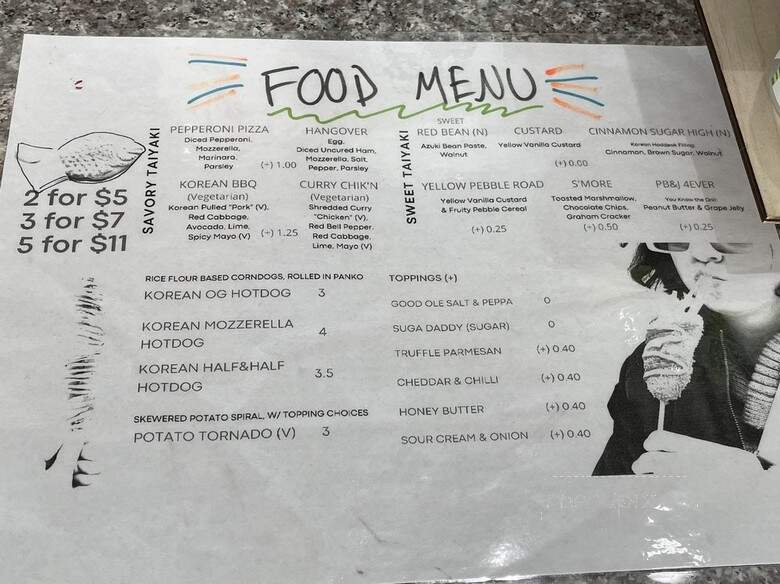 FOOD MENU
2 for $5
3 for $7
5 for $11
SAVORY TAIYAKI
PEPPERONI PIZZA
Diced Pepperoni,
Mozzerella,
Marinara,
Parsley
(+) 1.00
HANGOVER
Egg,
Diced Uncured Ham,
Mozzerella, Salt,
Pepper, Parsley
KOREAN BBQ
(Vegetarian)
Korean Pulled "Pork" (V),
Red Cabbage,
Avocado, Lime,
Spicy Mayo (V)
(+) 1.25
CURRY CHIK'N
(Vegetarian)
Shredded Curry
"Chicken" (V),
Red Bell Pepper,
Red Cabbage,
Lime, Mayo (V)
SWEET TAIYAKI
SWEET
RED BEAN (N)
Azuki Bean Paste,
Walnut
CUSTARD
Yellow Vanilla Custard
(+)0.00
CINNAMON SUGAR HIGH (N)
Korean Hoddeok Filling:
Cinnamon, Brown Sugar, Walnut
YELLOW PEBBLE ROAD
Yellow Vanilla Custard
& Fruity Pebble Cereal
(+) 0.25
S'MORE
Toasted Marshmallow,
Chocolate Chips,
Graham Cracker
(+) 0.50
PB&J 4EVER
You Know the Drill:
Peanut Butter & Grape Jelly
(+) 0.25
RICE FLOUR BASED CORNDOGS, ROLLED IN PANKO
KOREAN OG HOTDOG 3
KOREAN MOZZERELLA
HOTDOG 4
KOREAN HALF&HALF
HOTDOG 3.5
SKEWERED POTATO SPIRAL, W/ TOPPING CHOICES
POTATO TORNADO (V) 3
TOPPINGS (+)
GOOD OLE SALT & PEPPA 0
SUGA DADDY (SUGAR) 0
TRUFFLE PARMESAN (+) 0.40
CHEDDAR & CHILLI (+) 0.40
HONEY BUTTER (+) 0.40
SOUR CREAM & ONION (+) 0.40